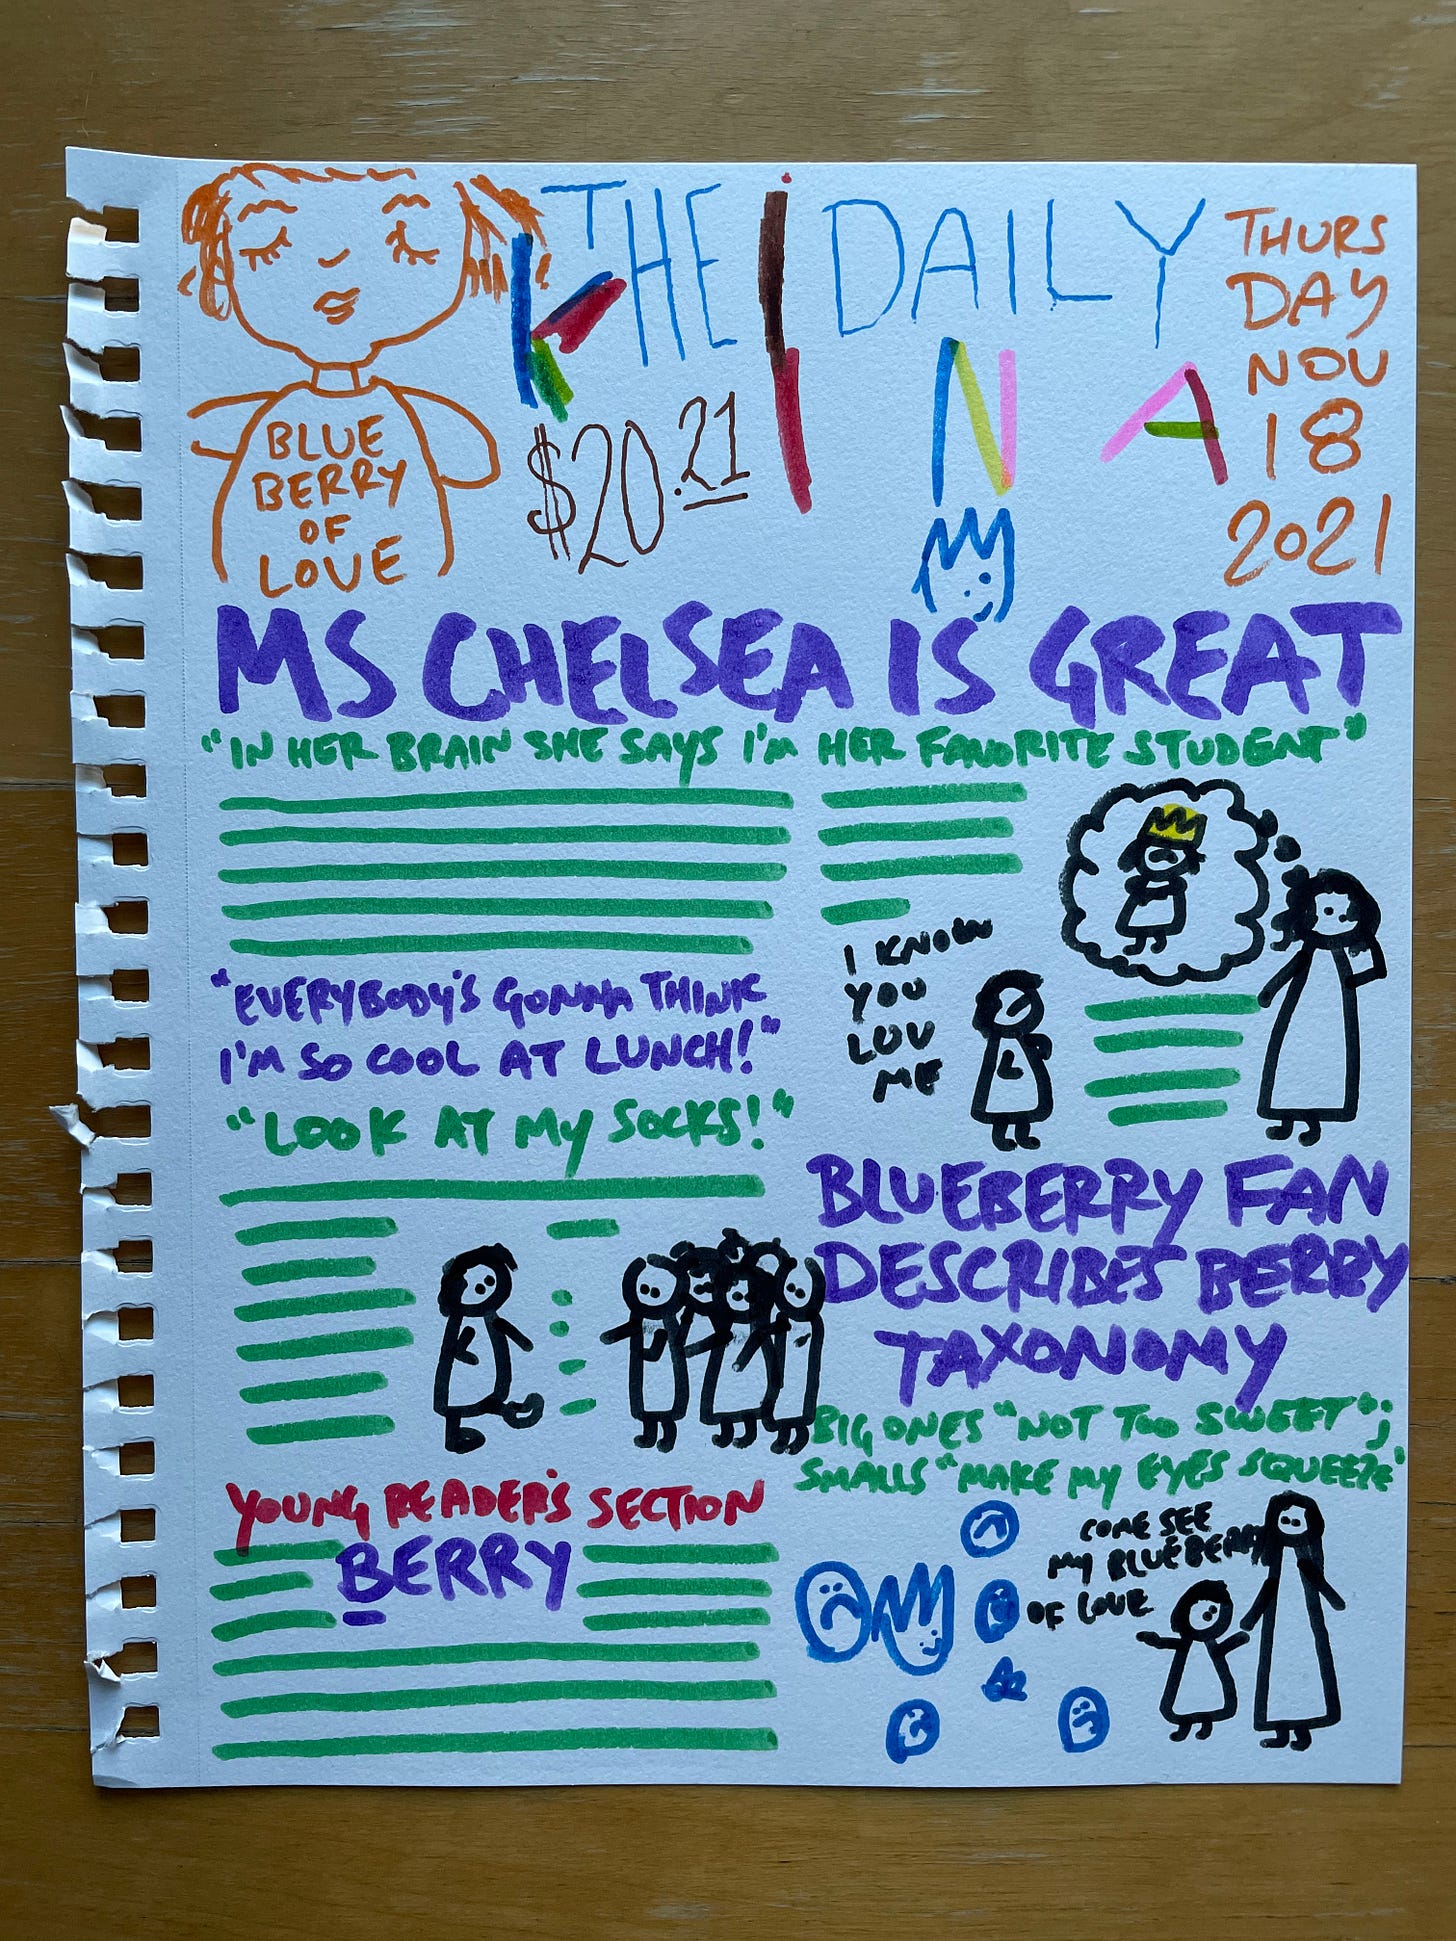 THE DAILY
KINA
$20.21
THURS
DAY
NOV
18
2021
BLUE
BERRY
OF
LOVE
MS CHELSEA IS GREAT
"IN HER BRAIN SHE SAYS I'M HER FAVORITE STUDENT"
I KNOW
YOU
LUV
ME
L
"EVERYBODY'S GONNA THINK
I'M SO COOL AT LUNCH!"
"LOOK AT MY SOCKS!"
BLUEBERRY FAN
DESCRIBES BERRY
TAXONOMY
BIG ONES "NOT TOO SWEET";
SMALLS "MAKE MY EYES SQUEEZE"
YOUNG READER'S SECTION
BERRY
COME SEE
MY BLUEBERRY
OF LOVE